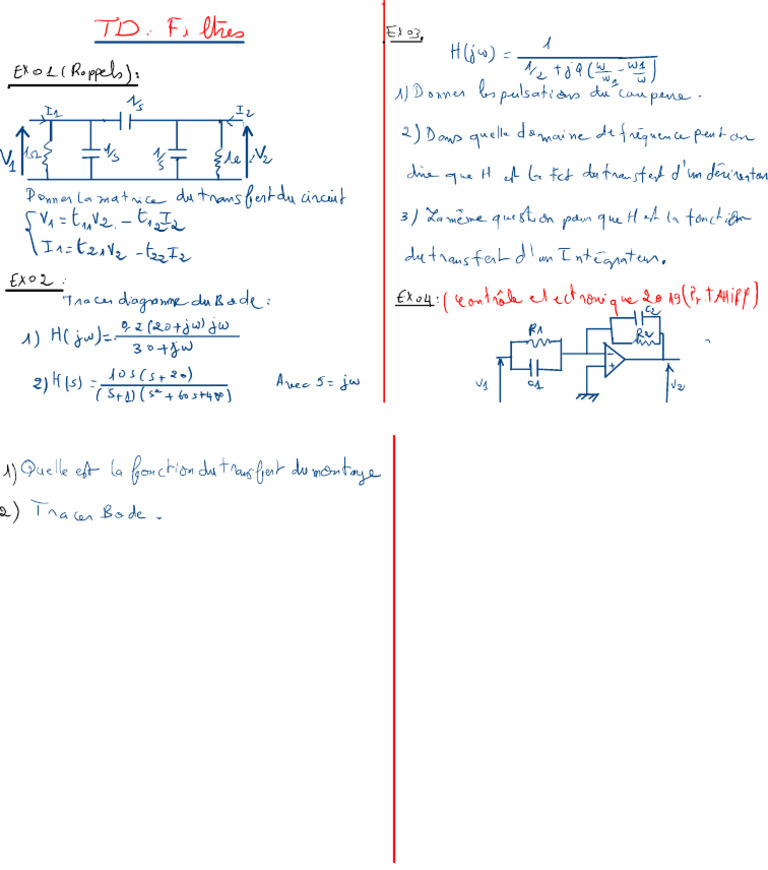 TD: Filtres
Ex01 (Rappels):
I1 1/s I2
V1 1Ω 1/s 1/s 1Ω V2
Donner la matrice du transfert du circuit
V1 = t11V2 - t12I2
I1 = t21V2 - t22I2
Ex02:
Tracer diagramme du Bode:
1) H(jω) = 0,2(20+jω)jω / 30+jω
2) H(s) = 10s(s+20) / (s+1)(s²+60s+400) Avec s = jω
Ex03,
H(jω) = 1 / 1/2 + jQ(ω/ω1 - ω1/ω)
1) Donner les pulsations du coupure.
2) Dans quelle domaine de fréquence peut on
dire que H est la fct du transfert d'un dérivateur
3) La même question pour que H est la fonction
du transfert d'un Intégrateur.
Ex04: (Contrôle electronique 2019 (Pr. TAHIRI)
C2
R1 R2
V1 C1 V2
1) Quelle est la fonction du transfert du montage
2) Tracer Bode.